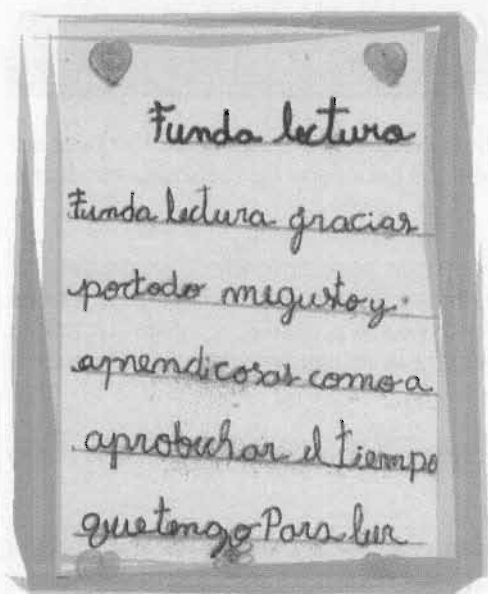 Funda lectura
Funda lectura gracias
portodo megusto y
aprendicosas como a
aprobechar el tiempo
quetengo Para ler